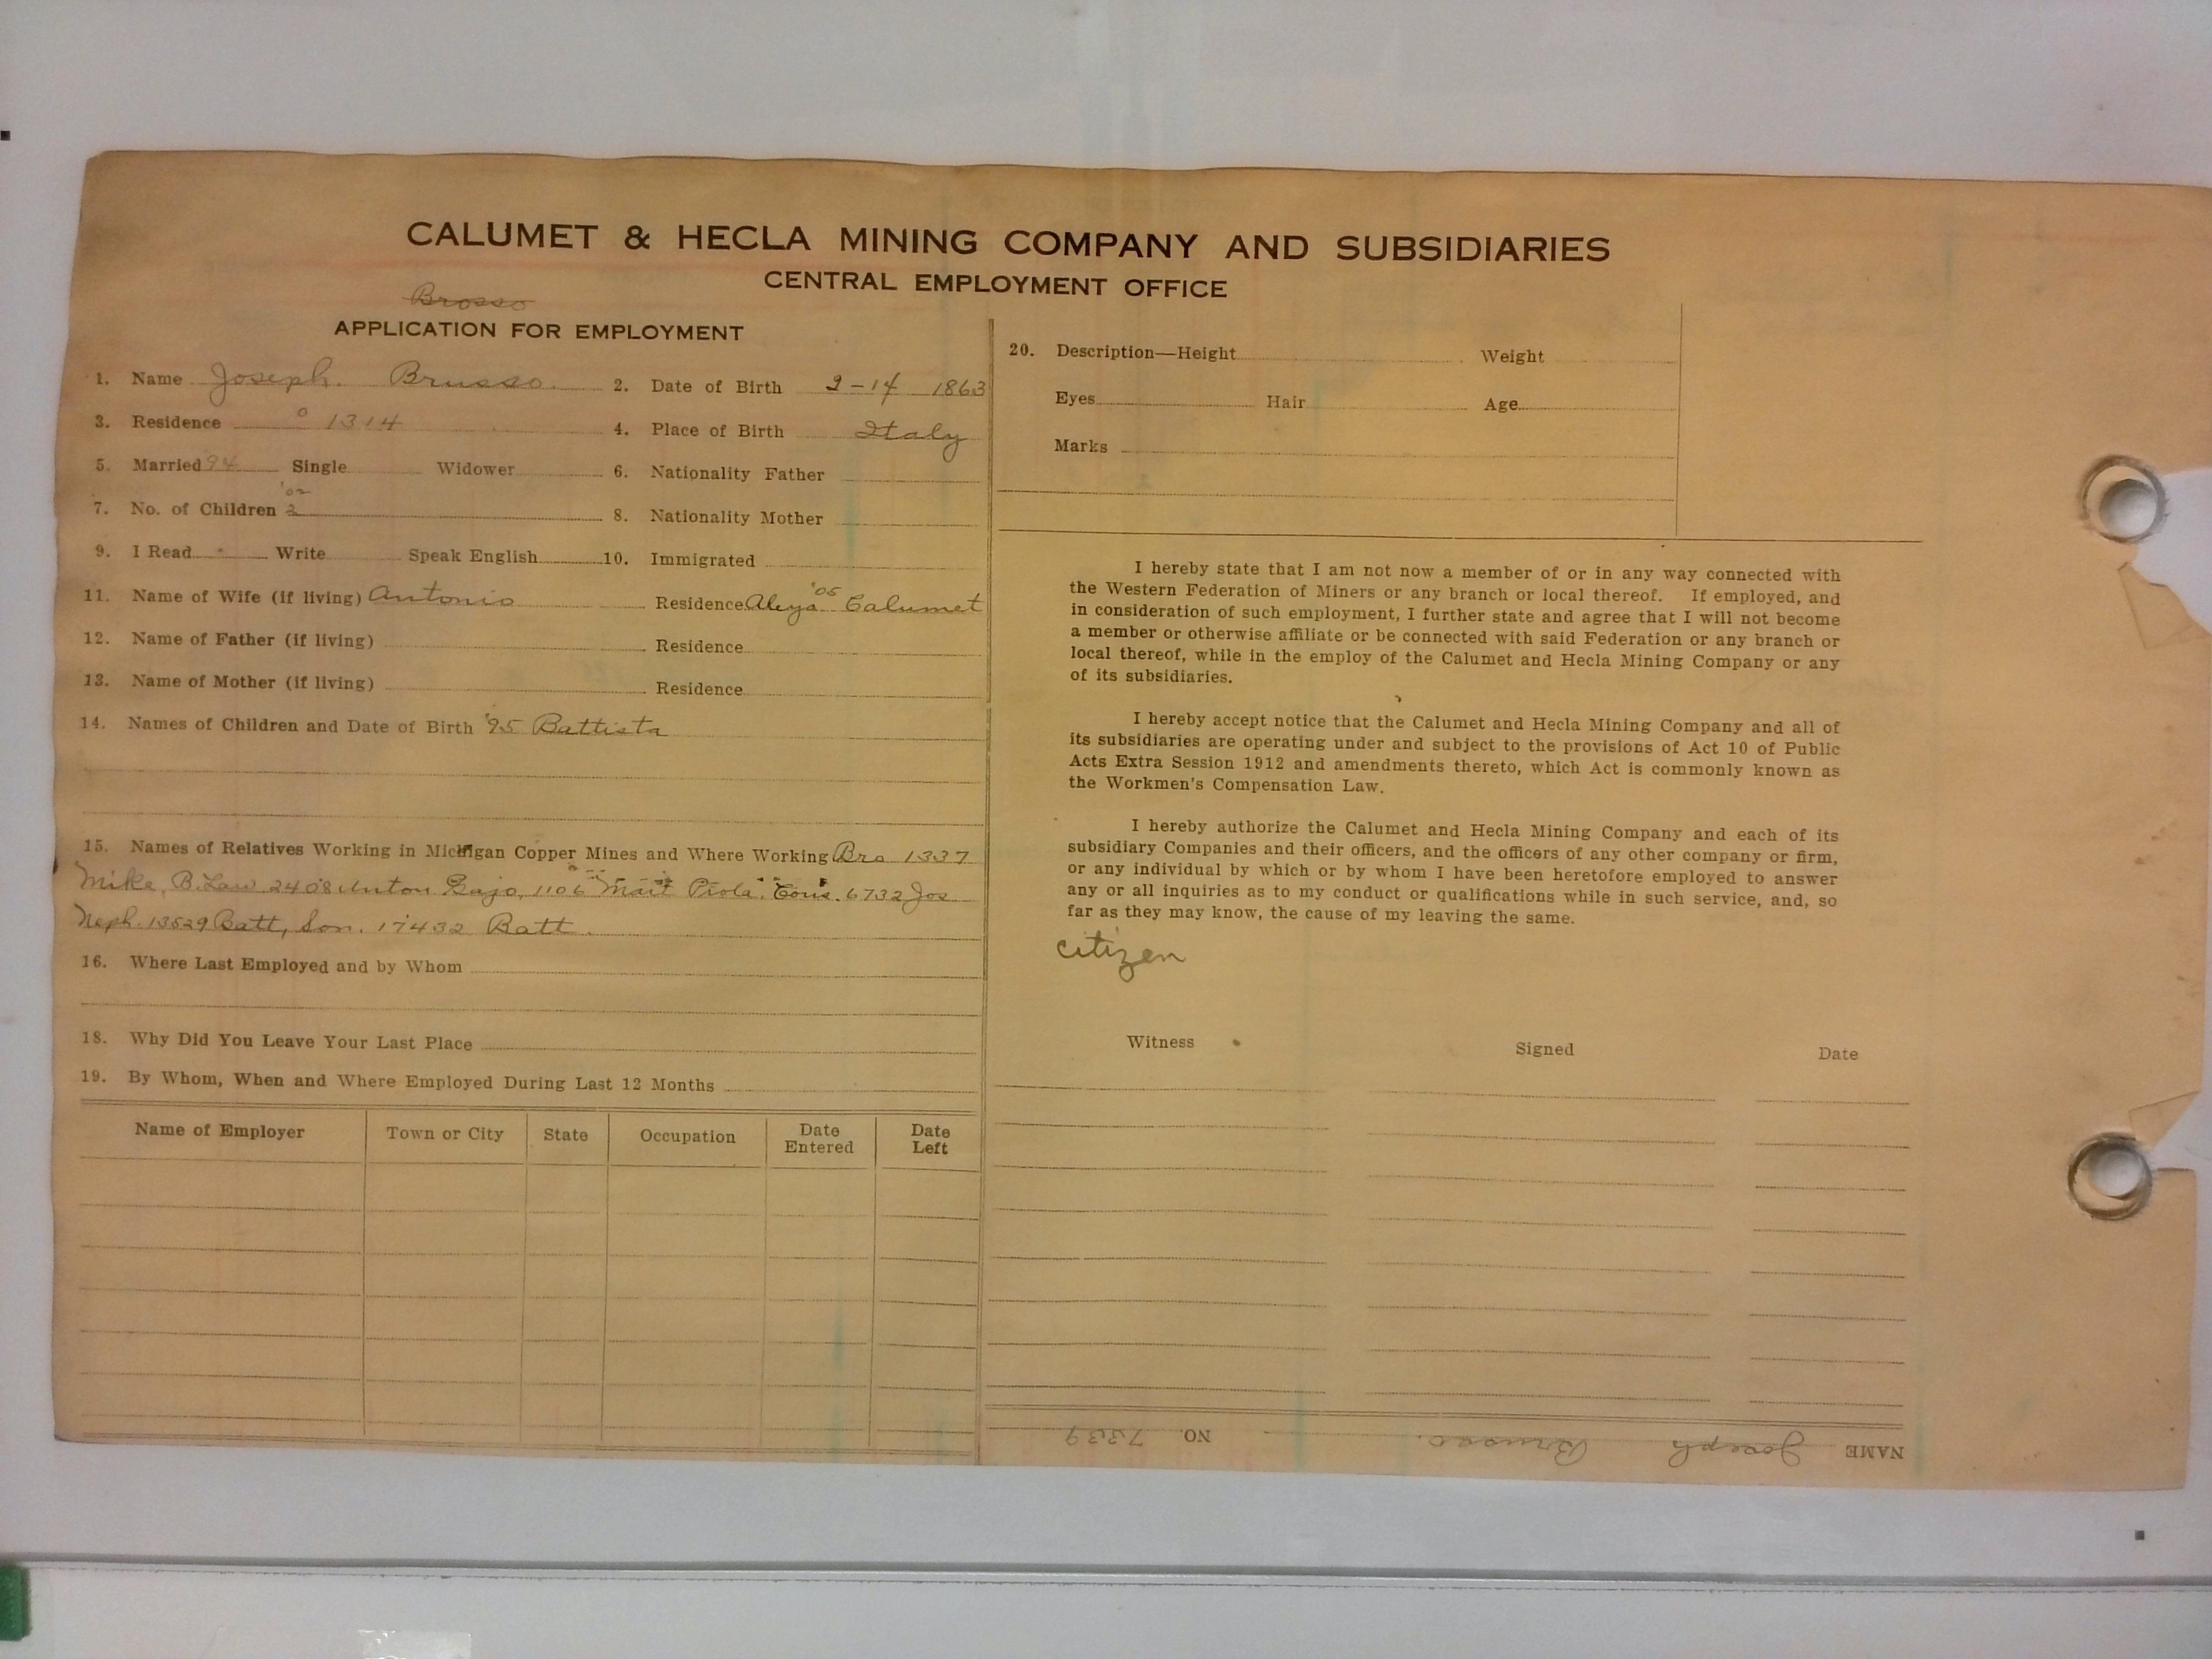 CALUMET & HECLA MINING COMPANY AND SUBSIDIARIES
CENTRAL EMPLOYMENT OFFICE
Brosso
APPLICATION FOR EMPLOYMENT
1. Name Joseph. Brusso. 2. Date of Birth 2-14 1863
3. Residence 1314 4. Place of Birth Italy
5. Married 94 Single Widower 6. Nationality Father
'02
7. No. of Children 2 8. Nationality Mother
9. I Read Write Speak English 10. Immigrated
11. Name of Wife (if living) Antonio Residence '05 Calumet
12. Name of Father (if living) Residence
13. Name of Mother (if living) Residence
14. Names of Children and Date of Birth '95 Battista
15. Names of Relatives Working in Michigan Copper Mines and Where Working Bro 1337
Mike, B. Law 2408 Anton Gajo, 1106 Mait Piola. Cous. 6732 Jos
Neph. 13529 Batt, Son. 17432 Batt.
16. Where Last Employed and by Whom
18. Why Did You Leave Your Last Place
19. By Whom, When and Where Employed During Last 12 Months
Name of Employer Town or City State Occupation Date Entered Date Left
20. Description—Height Weight
Eyes Hair Age
Marks
I hereby state that I am not now a member of or in any way connected with
the Western Federation of Miners or any branch or local thereof. If employed, and
in consideration of such employment, I further state and agree that I will not become
a member or otherwise affiliate or be connected with said Federation or any branch or
local thereof, while in the employ of the Calumet and Hecla Mining Company or any
of its subsidiaries.
I hereby accept notice that the Calumet and Hecla Mining Company and all of
its subsidiaries are operating under and subject to the provisions of Act 10 of Public
Acts Extra Session 1912 and amendments thereto, which Act is commonly known as
the Workmen's Compensation Law.
I hereby authorize the Calumet and Hecla Mining Company and each of its
subsidiary Companies and their officers, and the officers of any other company or firm,
or any individual by which or by whom I have been heretofore employed to answer
any or all inquiries as to my conduct or qualifications while in such service, and, so
far as they may know, the cause of my leaving the same.
citizen
Witness Signed Date
NAME Joseph Brusso. NO. 7339